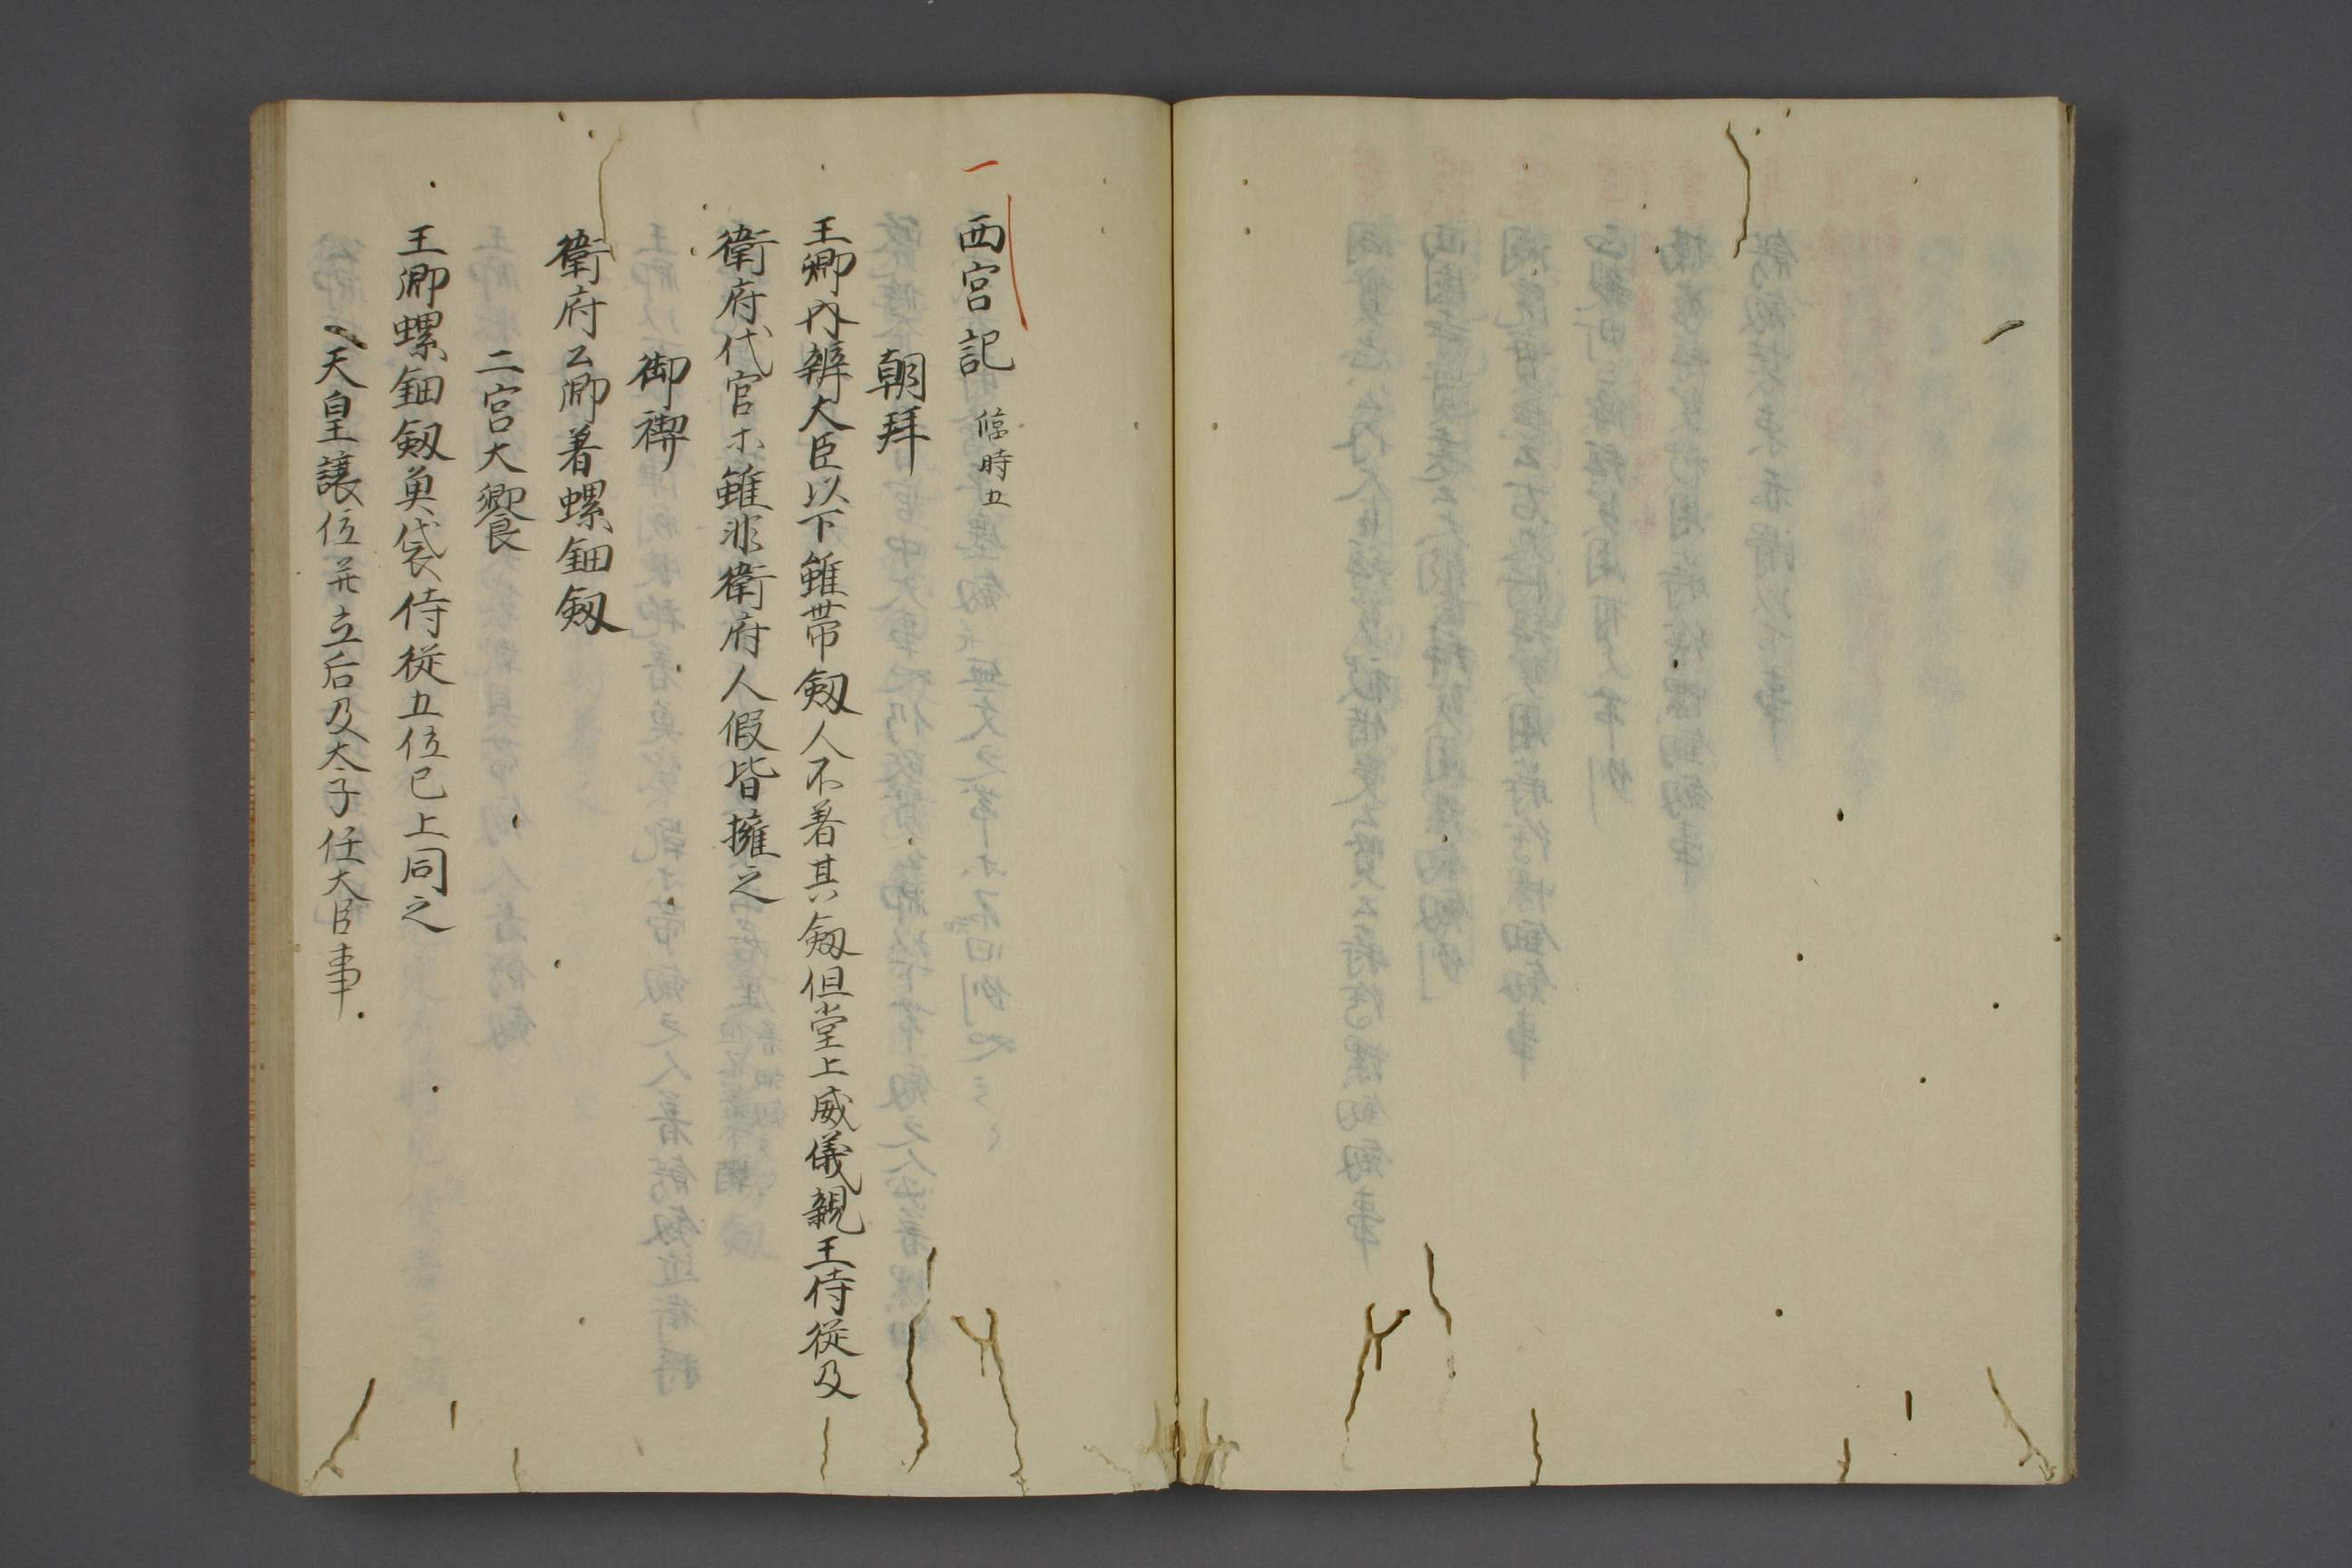 一 西宮記 臨時五
朝拜
王卿内辨大臣以下雖帶釼人不著其釼但堂上威儀親王侍從及
衛府代官ホ雖非衛府人假皆擁之
御禊
衛府公卿著螺鈿釼
二宮大饗
王卿螺鈿釼魚袋侍從五位已上同之
天皇讓位并立后及太子任大臣事